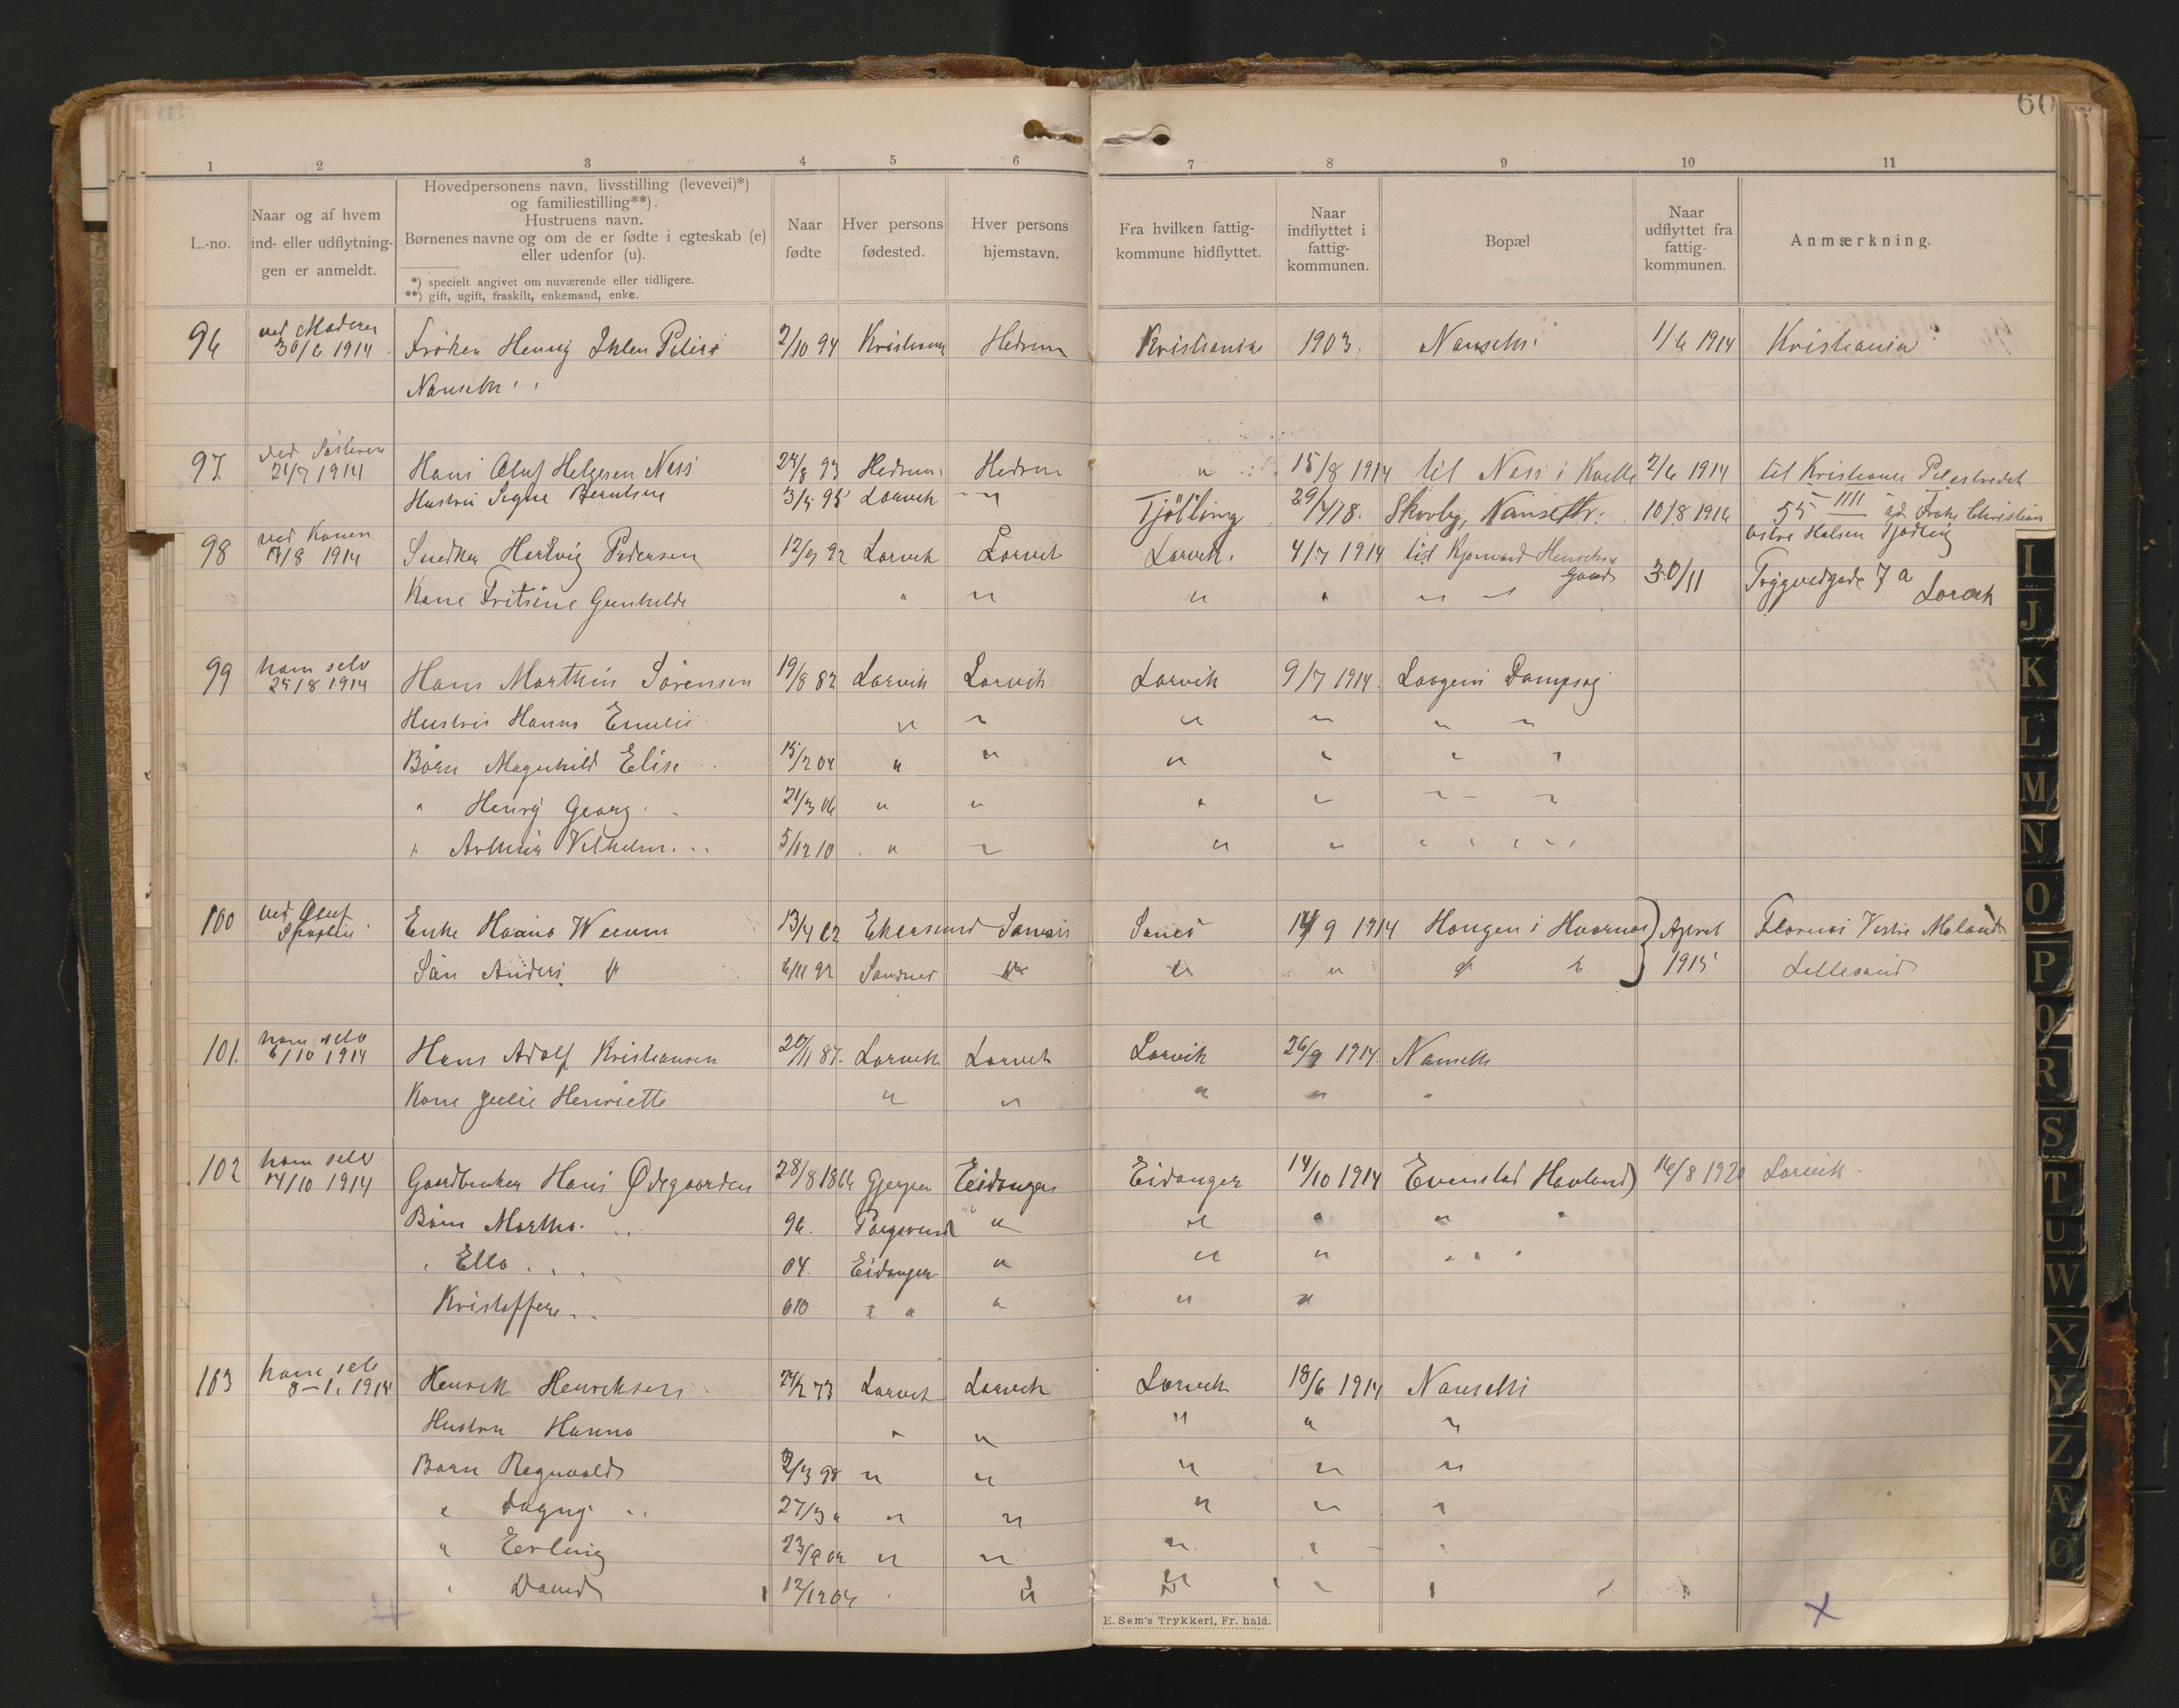 60
1 2 3 4 5 6 7 8 9 10 11
L.-no.
Naar og af hvem
ind- eller udflytnin-
gen er anmeldt.
Hovedpersonens navn, livsstilling (levevei)*)
og familiestilling**).
Hustruens navn.
Børnenes navne og om de er fødte i egteskab (e)
eller udenfor (u).
*) specielt angivet om nuværende eller tidligere.
**) gift, ugift, fraskilt, enkemand, enke.
Naar
fødte
Hver persons
fødested.
Hver persons
hjemstavn.
Fra hvilken fattig-
kommune hidflyttet.
Naar
indflyttet i
fattig-
kommunen.
Bopæl
Naar
udflyttet fra
fattig-
kommunen.
Anmærkning.
96 ved Moderen 30/6 1914 Frøken Henny Ihlen 2/10 94 Kristiania Hedrum Kristiania 1903. Nanseth 1/6 1914 Kristiania
Nanseth
97. ved Søsteren 21/7 1914 Hans Oluf Helgesen Ness 24/8 93 Hedrum Hedrum " 15/8 1914 til Ness i Kvelle 2/6 1914 til Kristiania Pilestredet
Hustru Signe Berntsen 3/5 95 Larvik " Tjølling 29/4/78. Nanseth. 10/8 1916 55 IIII
Østre Halsen Tjødling
98 ved Konen 17/8 1914 Snedker Hartvig Pedersen 12/9 92 Larvik Larvik Larvik. 4/7 1914 til Henriksen
Gaard 30/11 Tryggvedgade 7 a Larvik
Kone Fritsine Gunhilde " " " " " "
99 ham selv 25/8 1914 Hans Marthin Sørensen 19/8 82 Larvik Larvik Larvik 9/7 1914. Laagens Dampsag
Hustru Hanna Emilie " " " " " "
Børn Magnhild Elise 15/2 04 " " " " " "
" Henry Georg. 21/3 06 " " " " " "
" Arthur Vilhelm. 5/12 10 " " " " " "
100 ved Oluf Enke Hanna Werum 13/4 62 Ekersund 14/9 1914 Haugen i Hvarnes April
Søn Anders " 6/11 92 Sandnes " " " " " 1915 Lillesand
101. ham selv 6/10 1914 Hans Adolf Kristiansen 20/11 87. Larvik Larvik Larvik 26/9 1914. Nanseth
Kone Julie Henriette " " " " "
102 ham selv 14/10 1914 Gaardbruker Hans Ødegaarden 28/8 1866 Gjerpen Eidanger Eidanger 14/10 1914 Evenstad Havland 16/8 1920 Larvik
Børn Martha. 96. Porsgrund " " " " "
" Ella 04. Eidanger " " " " "
Kristoffer 010 " " " " "
103 ham selv 8-1. 1914 Henrik Henriksen. 24/2 73 Larvik Larvik Larvik 18/6 1914 Nanseth
Hustru Hanna " " " " "
Børn Regnvald 2/3 98 " " " " "
" Dagny 27/3 " " " " " "
" Erling 23/9 02 " " " " "
" David 12/12 04 " " " " "
E. Sem's Trykkeri, Fr. hald.
I
J
K
L
M
N
O
P
Q
R
S
T
U
W
X
Y
Z
Æ
Ø